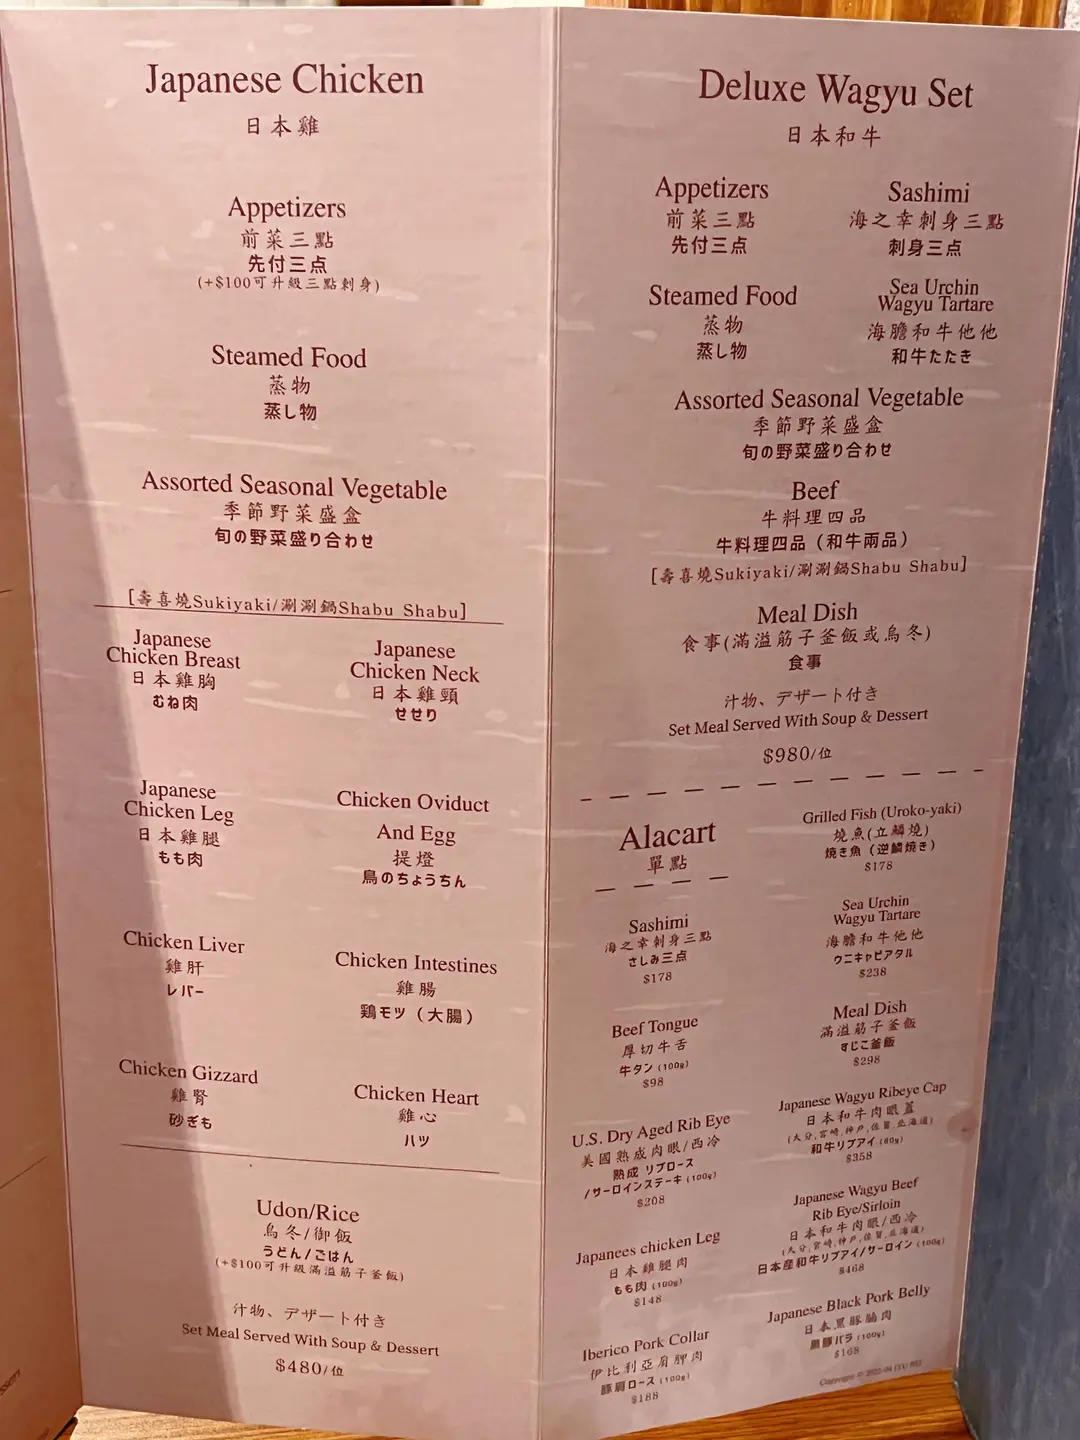 Japanese Chicken
日本雞
Appetizers
前菜三點
先付三点
(+$100可升級三點刺身)
Steamed Food
蒸物
蒸し物
Assorted Seasonal Vegetable
季節野菜盛盒
旬の野菜盛り合わせ
[壽喜燒Sukiyaki/涮涮鍋Shabu Shabu]
Japanese
Chicken Breast
日本雞胸
むね肉
Japanese
Chicken Neck
日本雞頸
せせり
Japanese
Chicken Leg
日本雞腿
もも肉
Chicken Oviduct
And Egg
提燈
鳥のちょうちん
Chicken Liver
雞肝
レバー
Chicken Intestines
雞腸
鶏モツ（大腸）
Chicken Gizzard
雞腎
砂ぎも
Chicken Heart
雞心
ハツ
Udon/Rice
烏冬/御飯
うどん/ごはん
(+$100可升級滿溢筋子釜飯)
汁物、デザート付き
Set Meal Served With Soup & Dessert
$480/位
Deluxe Wagyu Set
日本和牛
Appetizers
前菜三點
先付三点
Sashimi
海之幸刺身三點
刺身三点
Steamed Food
蒸物
蒸し物
Sea Urchin
Wagyu Tartare
海膽和牛他他
和牛たたき
Assorted Seasonal Vegetable
季節野菜盛盒
旬の野菜盛り合わせ
Beef
牛料理四品
牛料理四品（和牛兩品）
[壽喜燒Sukiyaki/涮涮鍋Shabu Shabu]
Meal Dish
食事(滿溢筋子釜飯或烏冬)
食事
汁物、デザート付き
Set Meal Served With Soup & Dessert
$980/位
Alacart
單點
Sashimi
海之幸刺身三點
さしみ三点
$178
Beef Tongue
厚切牛舌
牛タン (100g)
$98
U.S. Dry Aged Rib Eye
美國熟成肉眼/西冷
熟成 リブロース
/サーロインステーキ (100g)
$208
Japanees chicken Leg
日本雞腿肉
もも肉 (100g)
$148
Iberico Pork Collar
伊比利亞肩胛肉
豚肩ロース (100g)
$188
Grilled Fish (Uroko-yaki)
燒魚(立鱗燒)
焼き魚（逆鱗焼き）
$178
Sea Urchin
Wagyu Tartare
海膽和牛他他
ウニキャビアタル
$238
Meal Dish
滿溢筋子釜飯
すじこ釜飯
$298
Japanese Wagyu Ribeye Cap
日本和牛肉眼蓋
(大分,宮崎,神戶,佐賀,北海道)
和牛リブアイ (80g)
$358
Japanese Wagyu Beef
Rib Eye/Sirloin
日本和牛肉眼/西冷
(大分,宮崎,神戶,佐賀,北海道)
日本産和牛リブアイ/サーロイン (100g)
$468
Japanese Black Pork Belly
日本黑豚腩肉
黒豚バラ (100g)
$168